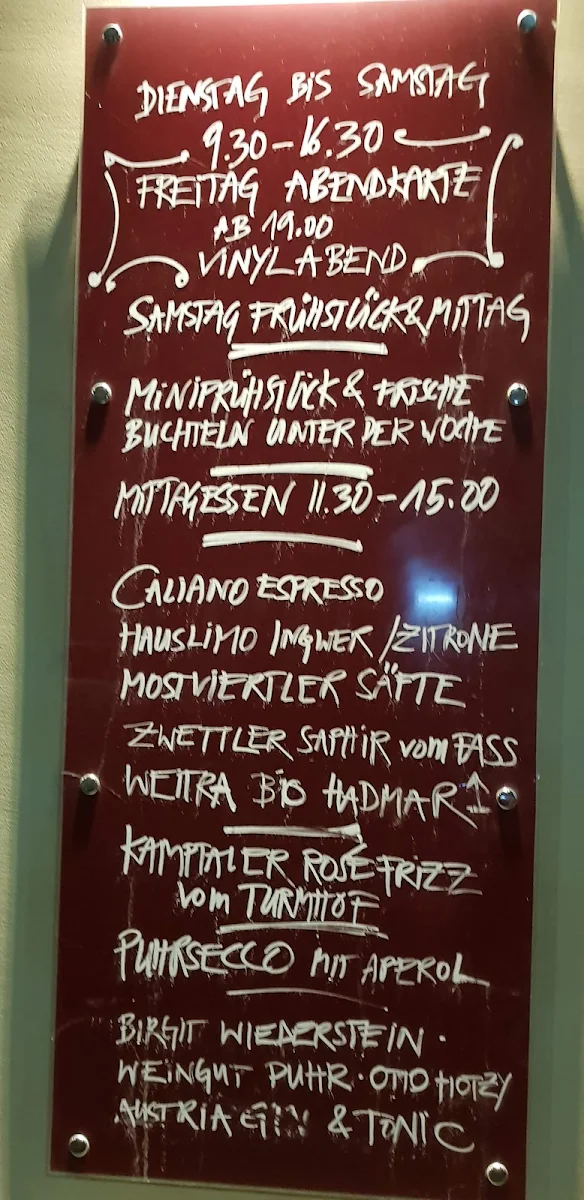 DIENSTAG BIS SAMSTAG
9.30-16.30
FREITAG ABENDKARTE
AB 19.00
VINYLABEND
SAMSTAG FRÜHSTÜCK & MITTAG
MINIFRÜHSTÜCK & FRISCHE
BUCHTELN UNTER DER WOCHE
MITTAGESSEN 11.30-15.00
CALIANO ESPRESSO
HAUSLIMO INGWER/ZITRONE
MOSTVIERTLER SÄFTE
ZWETTLER SAPHIR vom FASS
WEITRA BIO HADMAR ↑
KAMPTALER ROSÉ FRIZZ
vom TURMHOF
PUHRSECCO MIT APEROL
BIRGIT WIEDERSTEIN ·
WEINGUT PUHR · OTTO HOTZY
AUSTRIA GIN & TONIC